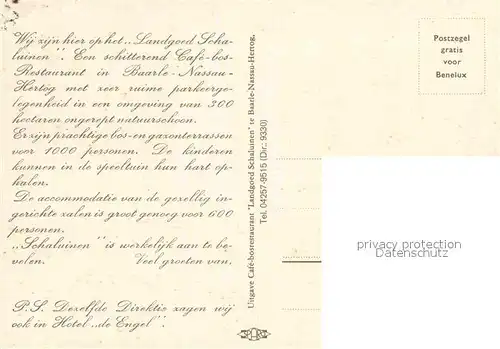 Wij zijn hier op het „Landgoed Scha-
luinen". Een schitterend Café-bos-
Restaurant in Baarle-Nassau-
Hertog met zeer ruime parkeerge-
legenheid in een omgeving van 300
hectaren ongerept natuurschoon.
Er zijn prachtige bos-en gazonterrassen
voor 1000 personen. De kinderen
kunnen in de speeltuin hun hart op-
halen.
De accommodatie van de gezellig in-
gerichte zalen is groot genoeg voor 600
personen.
„Schaluinen" is werkelijk aan te be-
velen. Veel groeten van,
P.S. Dezelfde Direktie zagen wij
ook in Hotel „de Engel".
Uitgave Café-bosrestaurant "Landgoed Schaluinen" te Baarle-Nassau-Hertog,
Tel. 04257-9515 (Dir.: 9330)
Postzegel
gratis
voor
Benelux
privacy protection